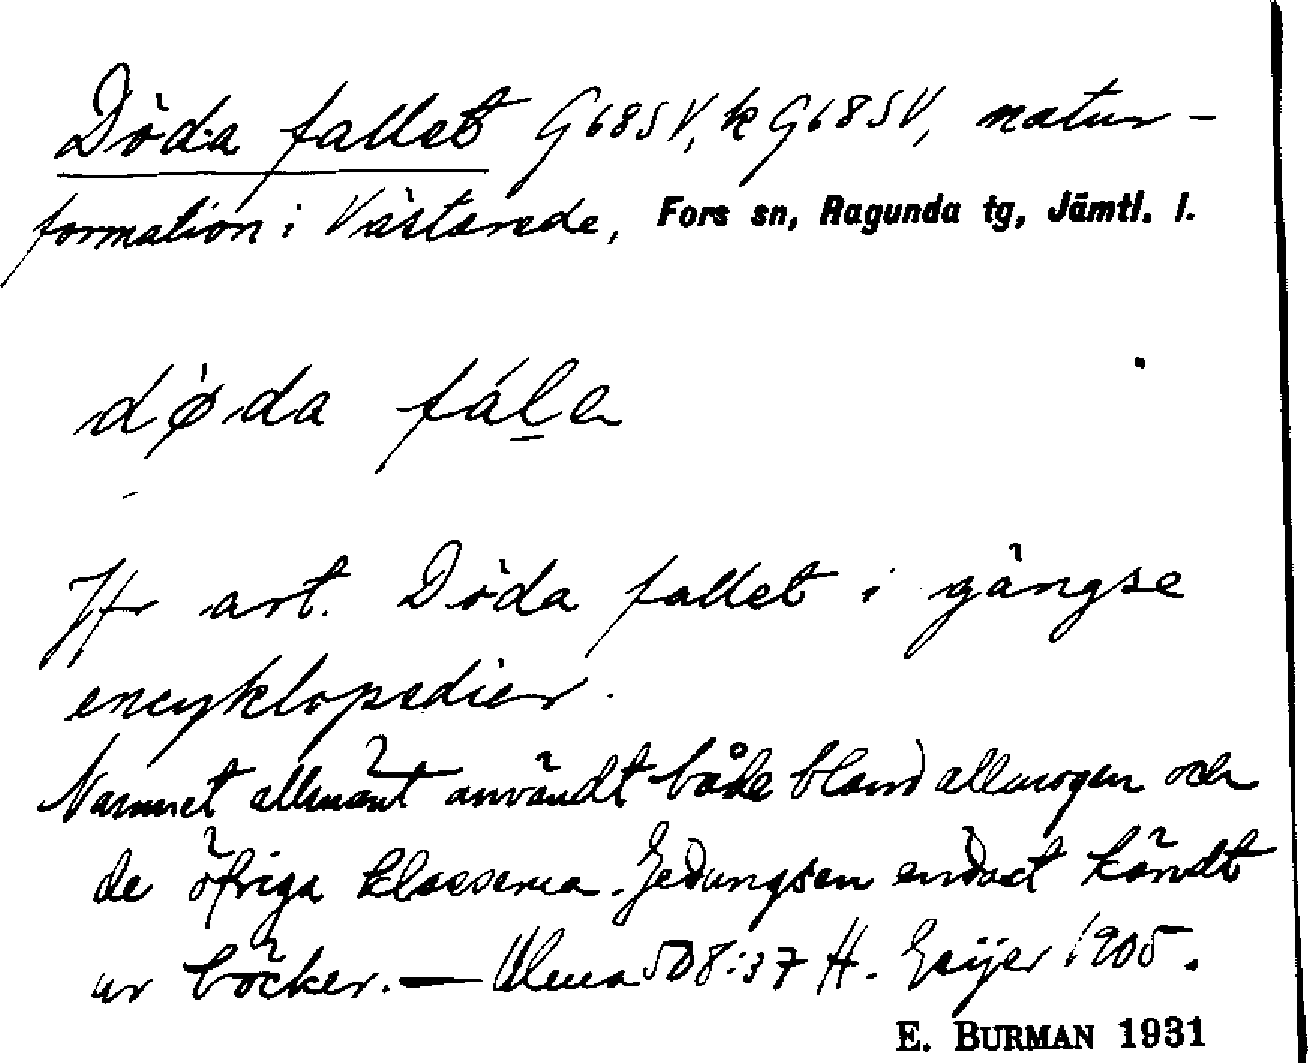 Döda fallet G68SV, k G68SV, natur-
formation i Västerede, Fors sn, Ragunda tg, Jämtl. l.
døda fála
Jfr art. Döda fallet i gängse
encyklopedier.
Namnet allmänt användt både bland allmogen och
de öfriga klasserna. Gedungsen endast kändt
ur böcker. — Ulma 508:37 H. Geijer 1905.
E. BURMAN 1931